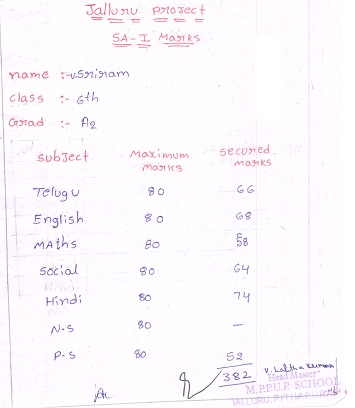 Jalluru Project
SA-I Marks
name :- V. Sriram
class :- 6th
Grad :- A2
Subject Maximum marks Secured marks
Telugu 80 66
English 80 68
MAths 80 58
Social 80 64
Hindi 80 74
N.S 80 —
P.S 80 52
382
V. Lalitha Kumari
Head Master
M.P.P.U.P. SCHOOL
JALLURU, PITHAPURAM